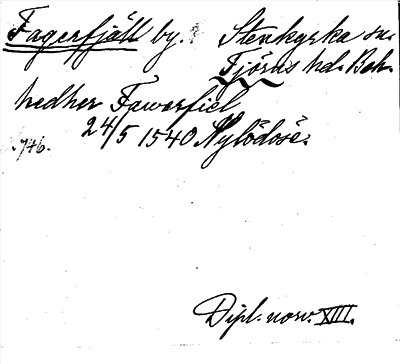 Fagerfjäll by. Stenkyrka sn.
Tjörns hd. Boh.
nedher Fawerfiel
24/5 1540 Nylödose.
.746.
Dipl. norv. XIII.